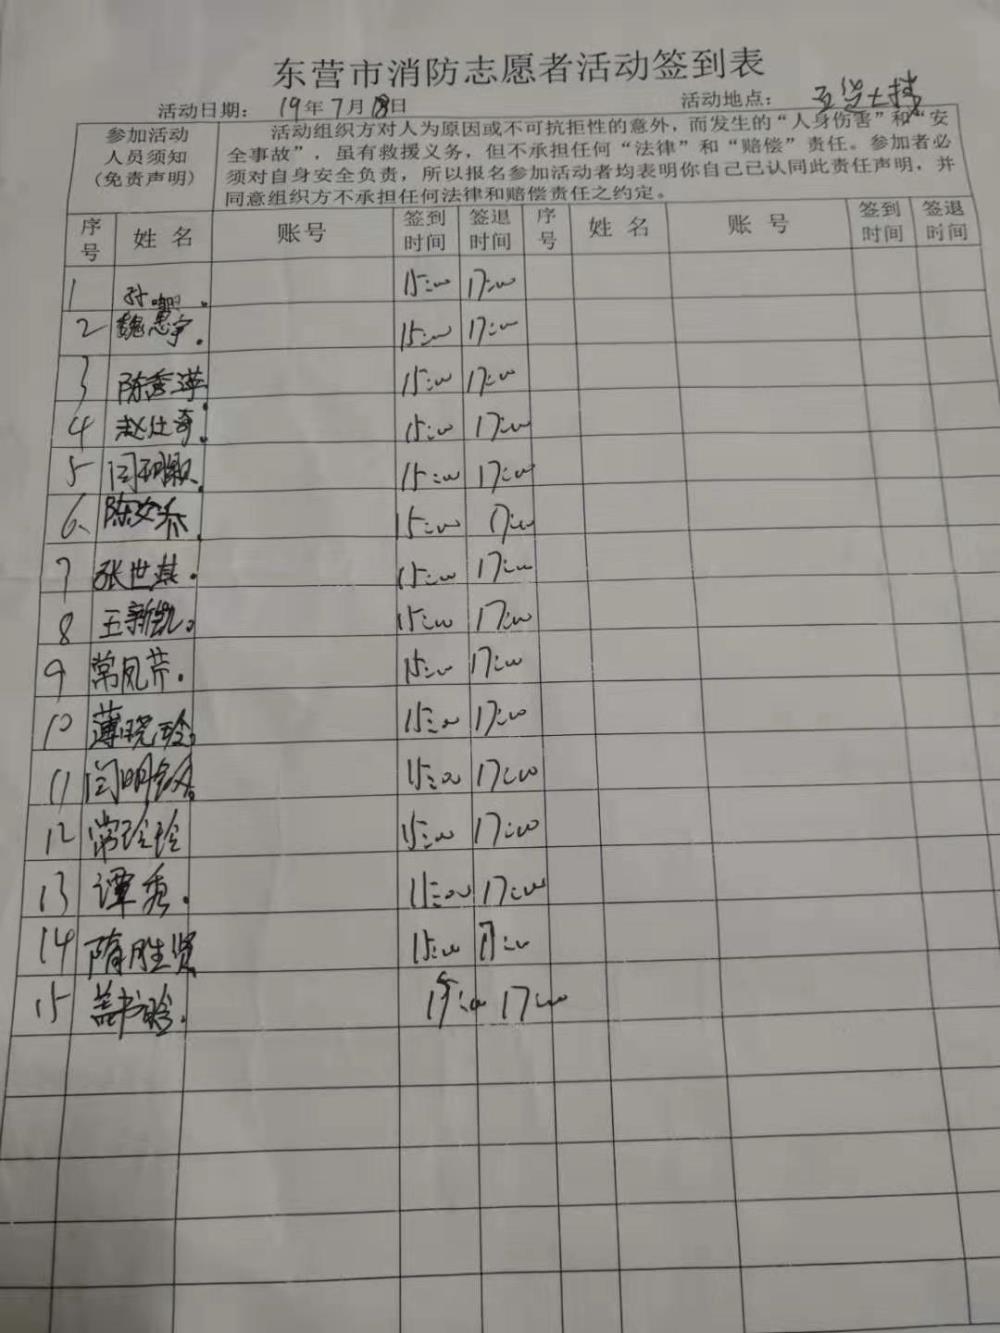 东营市消防志愿者活动签到表
活动日期： 19年7月18日 活动地点：
参加活动人员须知（免责声明）
活动组织方对人为原因或不可抗拒性的意外，而发生的“人身伤害”和“安
全事故”，虽有救援义务，但不承担任何“法律”和“赔偿”责任。参加者必
须对自身安全负责，所以报名参加活动者均表明你自己己认同此责任声明，并
同意组织方不承担任何法律和赔偿责任之约定。
序号 姓名 账号 签到时间 签退时间 序号 姓名 账号 签到时间 签退时间
1 15:00 17:00
2 魏惠宁. 15:00 17:00
3 陈秀萍 15:00 17:00
4 赵仕奇. 15:00 17:00
5 15:00 17:00
6、 陈文乔. 15:00 17:00
7 张世燕. 15:00 17:00
8 王新凯. 15:00 17:00
9 常凤芹. 15:00 17:00
10 薄晓玲. 15:00 17:00
11 15:00 17:00
12 常玲玲 15:00 17:00
13 谭秀. 15:00 17:00
14 隋胜贤 15:00 17:00
15 盖书晗. 15:00 17:00